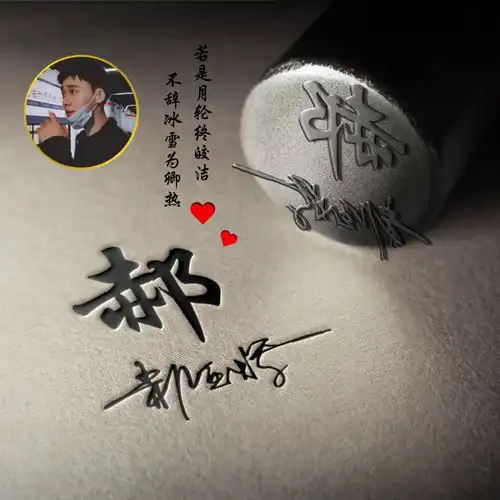 若是月轮终皎洁
不辞冰雪为卿热
郝